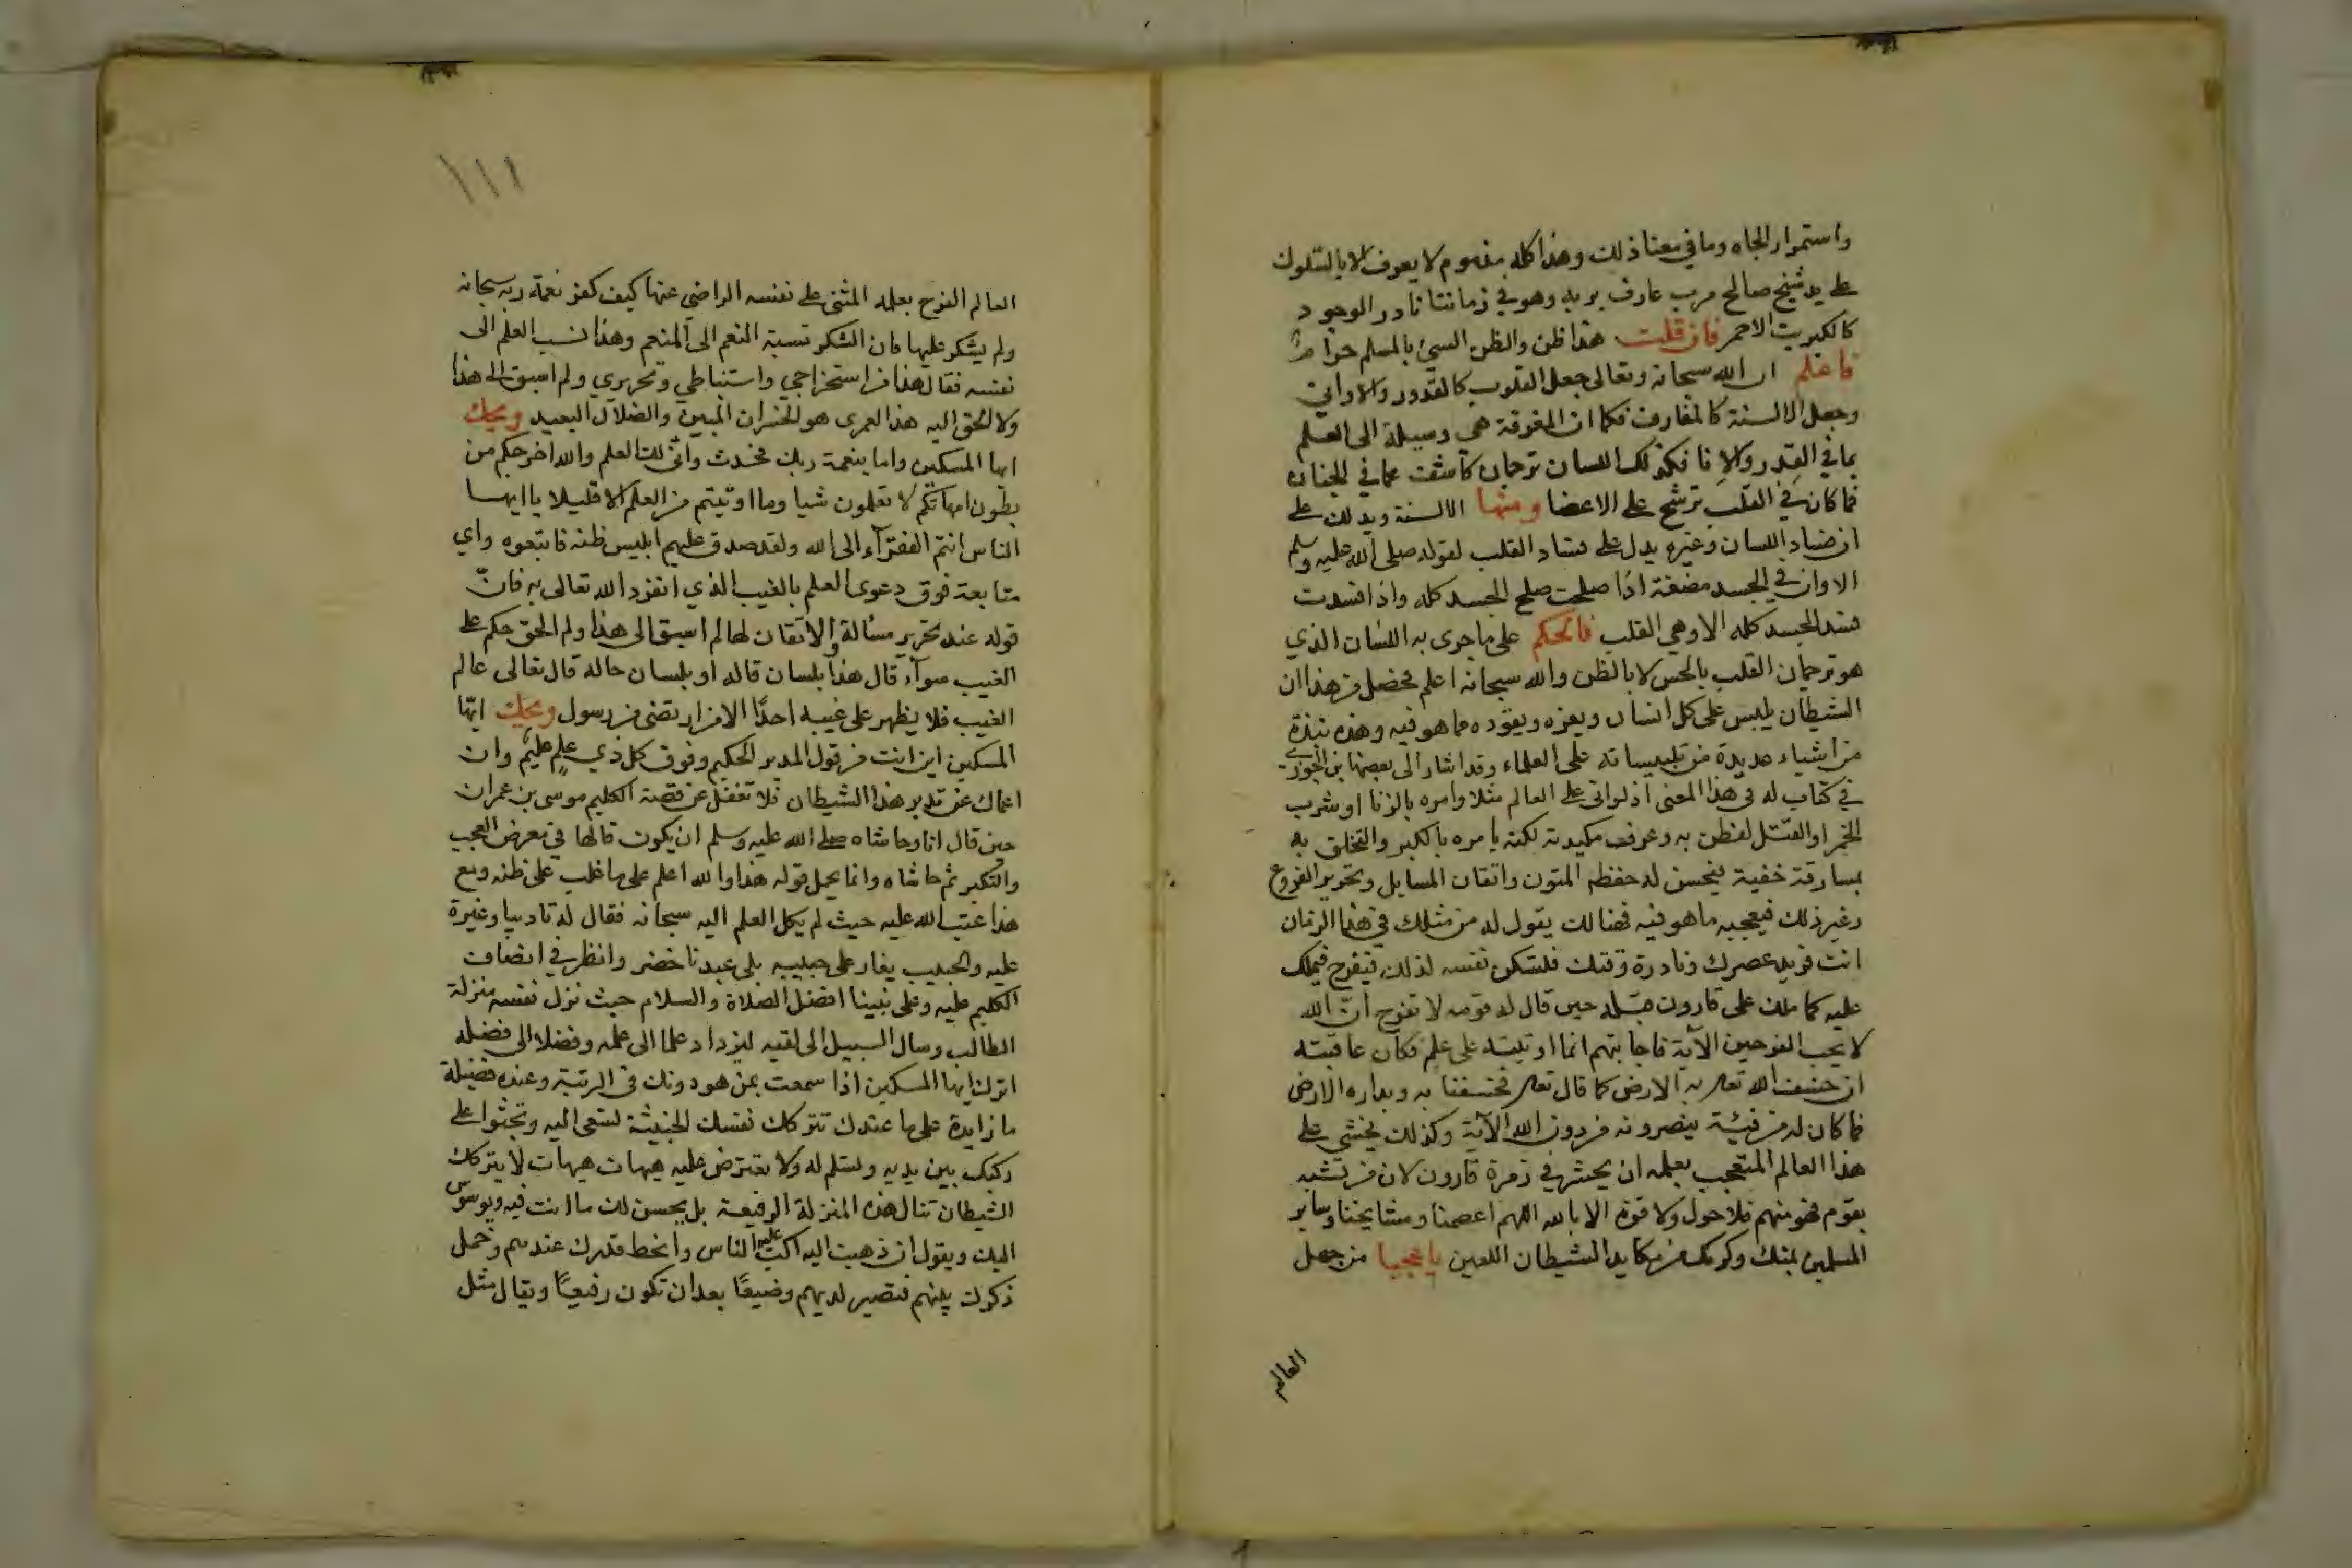 واستمرار الجاه وما في معنا ذلك وهذا كله مفهوم لا يعرف الا بالسلوك
على يد شيخ صالح مرب عارف بربه وهو في زماننا نادر الوجود
كالكبريت الاحمر فان قلت هذا ظن والظن السيئ بالمسلم حرام
فاعلم ان الله سبحانه وتعالى جعل القلوب كالقدور والاواني
وجعل الالسنة كالمغارف فكما ان المغرفة هي وسيلة الى العلم
بما في القدر والانا فكذلك اللسان ترجمان كاشف عما في الجنان
فما كان في القلب ترشح على الاعضا ومنها الالسنة ويدلك على
ان فساد اللسان وغيره يدل على فساد القلب لقوله صلى الله عليه وسلم
الا وان في الجسد مضغة اذا صلحت صلح الجسد كله واذا فسدت
فسد الجسد كله الا وهي القلب فالحكم على ما جرى به اللسان الذي
هو ترجمان القلب بالحس لا بالظن والله سبحانه اعلم فحصل من هذا ان
الشيطان يلبس على كل انسان ويعزه ويقوده مما هو فيه وهذه نبذة
من اشياء عديدة من تلبيساته على العلماء وقد اشار الى بعضها بن الجوزي
في كتاب له في هذا المعنى اذ لو اتى على العالم مثلا وامره بالزنا او شرب
الخمر او القتل لفطن به وعرف مكيدته لكنه يامره بالكبر والتخلق به
بسارقة خفية فيحسن له حفظه المتون واتقان المسايل وتحرير الفروع
وغير ذلك فيعجبه ما هو فيه فهنالك يقول له من مثلك في هذا الزمان
انت فريد عصرك ونادرة وقتك فلتسكن نفسه لذلك فيفرح فيملك
عليه كما ملك على قارون قبله حين قال له قومه لا تفرح ان الله
لا يحب الفرحين الآية فاجابتهم انما اوتيته على علم فكان عاقبته
ان خسف الله تعلى به الارض كما قال تعلى فخسفنا به وبداره الارض
فما كان له من فئة ينصرونه من دون الله الآية وكذلك يخشى على
هذا العالم المتعجب بعلمه ان يحشر في زمرة قارون لان من تشبه
بقوم فهو منهم فلا حول ولا قوة الا بالله اللهم اعصمنا ومشايخنا وساير
المسلمين بمنك وكرمك من مكايد الشيطان اللعين يا عجبا من جهل
العالم
١١١
العالم الفرح بعلمه المثنى على نفسه الراضي عنها كيف كفر نعمة ربه سبحانه
ولم يشكر عليها فان الشكر نسبة النعم الى المنعم وهذا نسب العلم الى
نفسه فقال هذا من استخراجي واستنباطي وتحريري ولم اسبق الى هذا
ولا الحق اليه هذا لعمرى هو الخسران المبين والضلال البعيد ويحك
ايها المسكين واما بنعمة ربك فحدث وانى لك العلم والله اخرجكم من
بطون امهاتكم لا تعلمون شيا وما اوتيتم من العلم الا قليلا يا ايها
الناس انتم الفقرآء الى الله ولقد صدق عليهم ابليس ظنه فاتبعوه واي
متابعة فوق دعوى العلم بالغيب الذي انفرد الله تعالى به فان
قوله عند تحرير مسألة والاتقان لها لم اسبق الى هذا ولم الحق حكم على
الغيب سوآء قال هذا بلسان قاله او بلسان حاله قال تعالى عالم
الغيب فلا يظهر على غيبه احدا الا من ارتضى من رسول ويحك ايها
المسكين اين انت من قول المدبر الحكيم وفوق كل ذي علم عليم وان
اعماك عن تدبر هذا الشيطان فلا تغفل عن قصة الكليم موسى بن عمران
حين قال انا وحاشاه صلى الله عليه وسلم ان يكون قالها في معرض العجب
والتكبر ثم حاشاه وانما يحمل قوله هذا والله اعلم على ما غلب على ظنه ومع
هذا عتب الله عليه حيث لم يكل العلم اليه سبحانه فقال له تاديبا وغيرة
عليه والحبيب يغار على حبيبه بلى عبدنا خضر وانظر في انصاف
الكليم عليه وعلى نبينا افضل الصلاة والسلام حيث نزل نفسه منزلة
الطالب وسال السبيل الى لقيه ليزداد علما الى علمه وفضلا الى فضله
اترك ايها المسكين اذا سمعت بمن هو دونك في الرتبة وعنده فضيلة
ما زايدة على ما عندك تتركك نفسك الخبيثة لتسعى اليه وتجثوا على
ركبك بين يديه وتسلم له ولا تعترض عليه هيهات هيهات لا يتركك
الشيطان تنال هذه المنزلة الرفيعة بل يحسن لك ما انت فيه ويوسوس
اليك ويقول ان ذهبت اليه اكب عليه الناس وانحط قدرك عندهم وخمل
ذكرك بينهم فتصير لديهم وضيعا بعد ان تكون رفيعا ويقال مثل